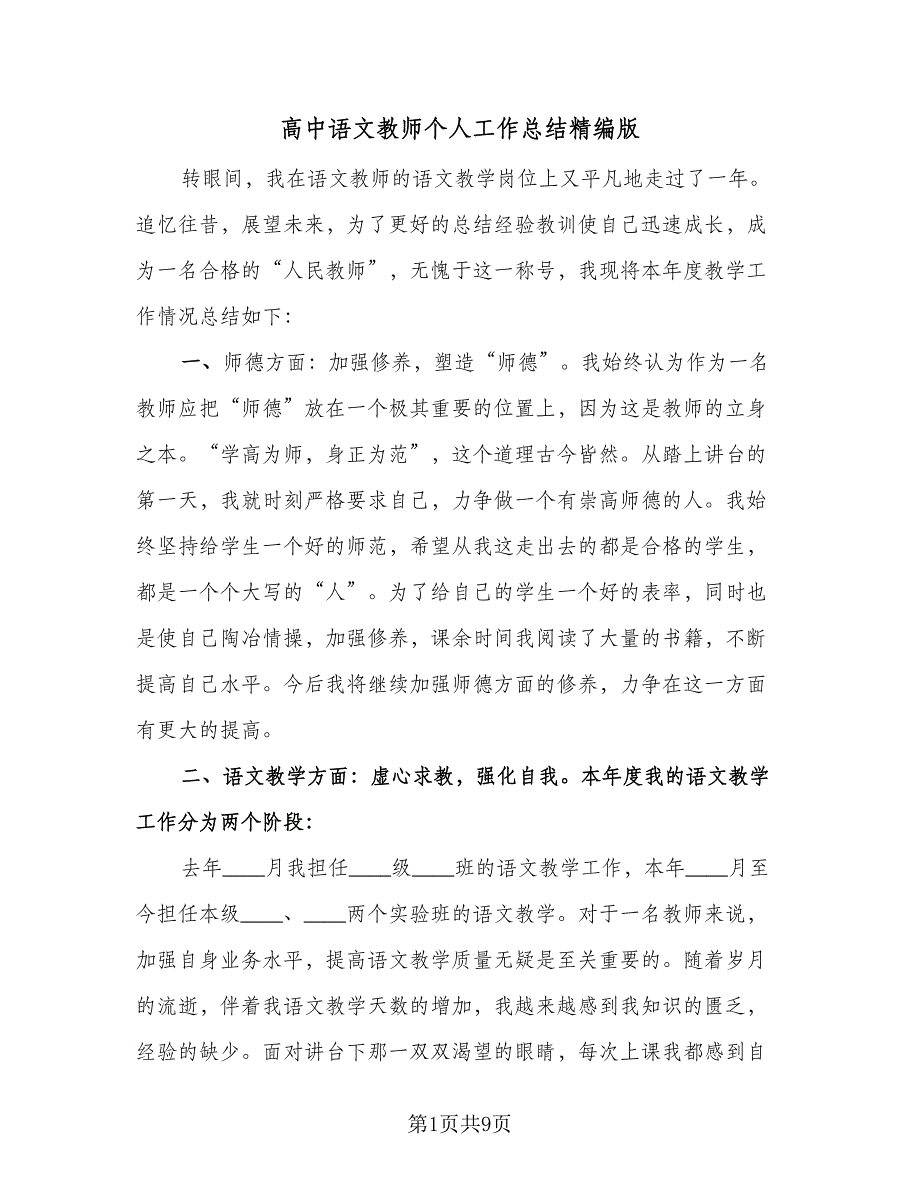 高中语文教师个人工作总结精编版
转眼间，我在语文教师的语文教学岗位上又平凡地走过了一年。
追忆往昔，展望未来，为了更好的总结经验教训使自己迅速成长，成
为一名合格的“人民教师”，无愧于这一称号，我现将本年度教学工
作情况总结如下：
一、师德方面：加强修养，塑造“师德”。我始终认为作为一名
教师应把“师德”放在一个极其重要的位置上，因为这是教师的立身
之本。“学高为师，身正为范”，这个道理古今皆然。从踏上讲台的
第一天，我就时刻严格要求自己，力争做一个有崇高师德的人。我始
终坚持给学生一个好的师范，希望从我这走出去的都是合格的学生，
都是一个个大写的“人”。为了给自己的学生一个好的表率，同时也
是使自己陶冶情操，加强修养，课余时间我阅读了大量的书籍，不断
提高自己水平。今后我将继续加强师德方面的修养，力争在这一方面
有更大的提高。
二、语文教学方面：虚心求教，强化自我。本年度我的语文教学
工作分为两个阶段：
去年____月我担任____级____班的语文教学工作，本年____月至
今担任本级____、____两个实验班的语文教学。对于一名教师来说，
加强自身业务水平，提高语文教学质量无疑是至关重要的。随着岁月
的流逝，伴着我语文教学天数的增加，我越来越感到我知识的匮乏，
经验的缺少。面对讲台下那一双双渴望的眼睛，每次上课我都感到自
第1页共9页